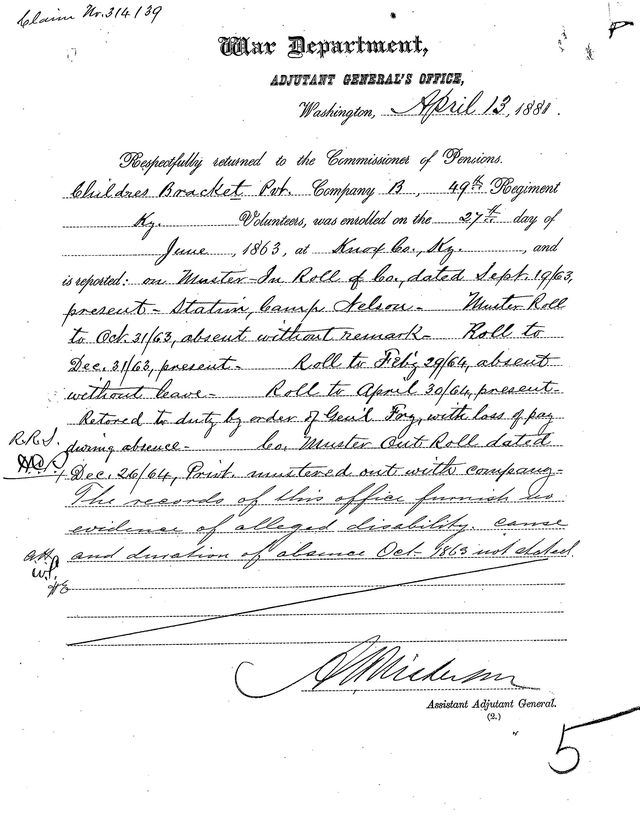 Claim Nr. 314139
War Department,
ADJUTANT GENERAL'S OFFICE,
Washington, April 13, 1881.
Respectfully returned to the Commissioner of Pensions.
Childres Bracket Pvt. Company B, 49th Regiment
Ky. Volunteers, was enrolled on the 27th day of
June, 1863, at Knox Co., Ky., and
is reported: on Muster-In Roll of Co., dated Sept. 19/63,
present - Station, Camp Nelson - Muster Roll
to Oct. 31/63, absent without remark - Roll to
Dec. 31/63, present - Roll to Feby 29/64, absent
without leave - Roll to April 30/64, present -
Retored to duty by order of Gen'l Fry, with loss of pay
R.R.S.
during absence - Co. Muster Out Roll dated
Dec. 26/64, Privt. mustered out with company -
The records of this office furnish no
evidence of alleged disability. cause
and duration of absence Oct- 1863 not stated.
Assistant Adjutant General.
(2.)
5